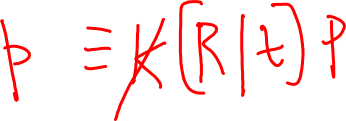 p ≡ K [R | t] P